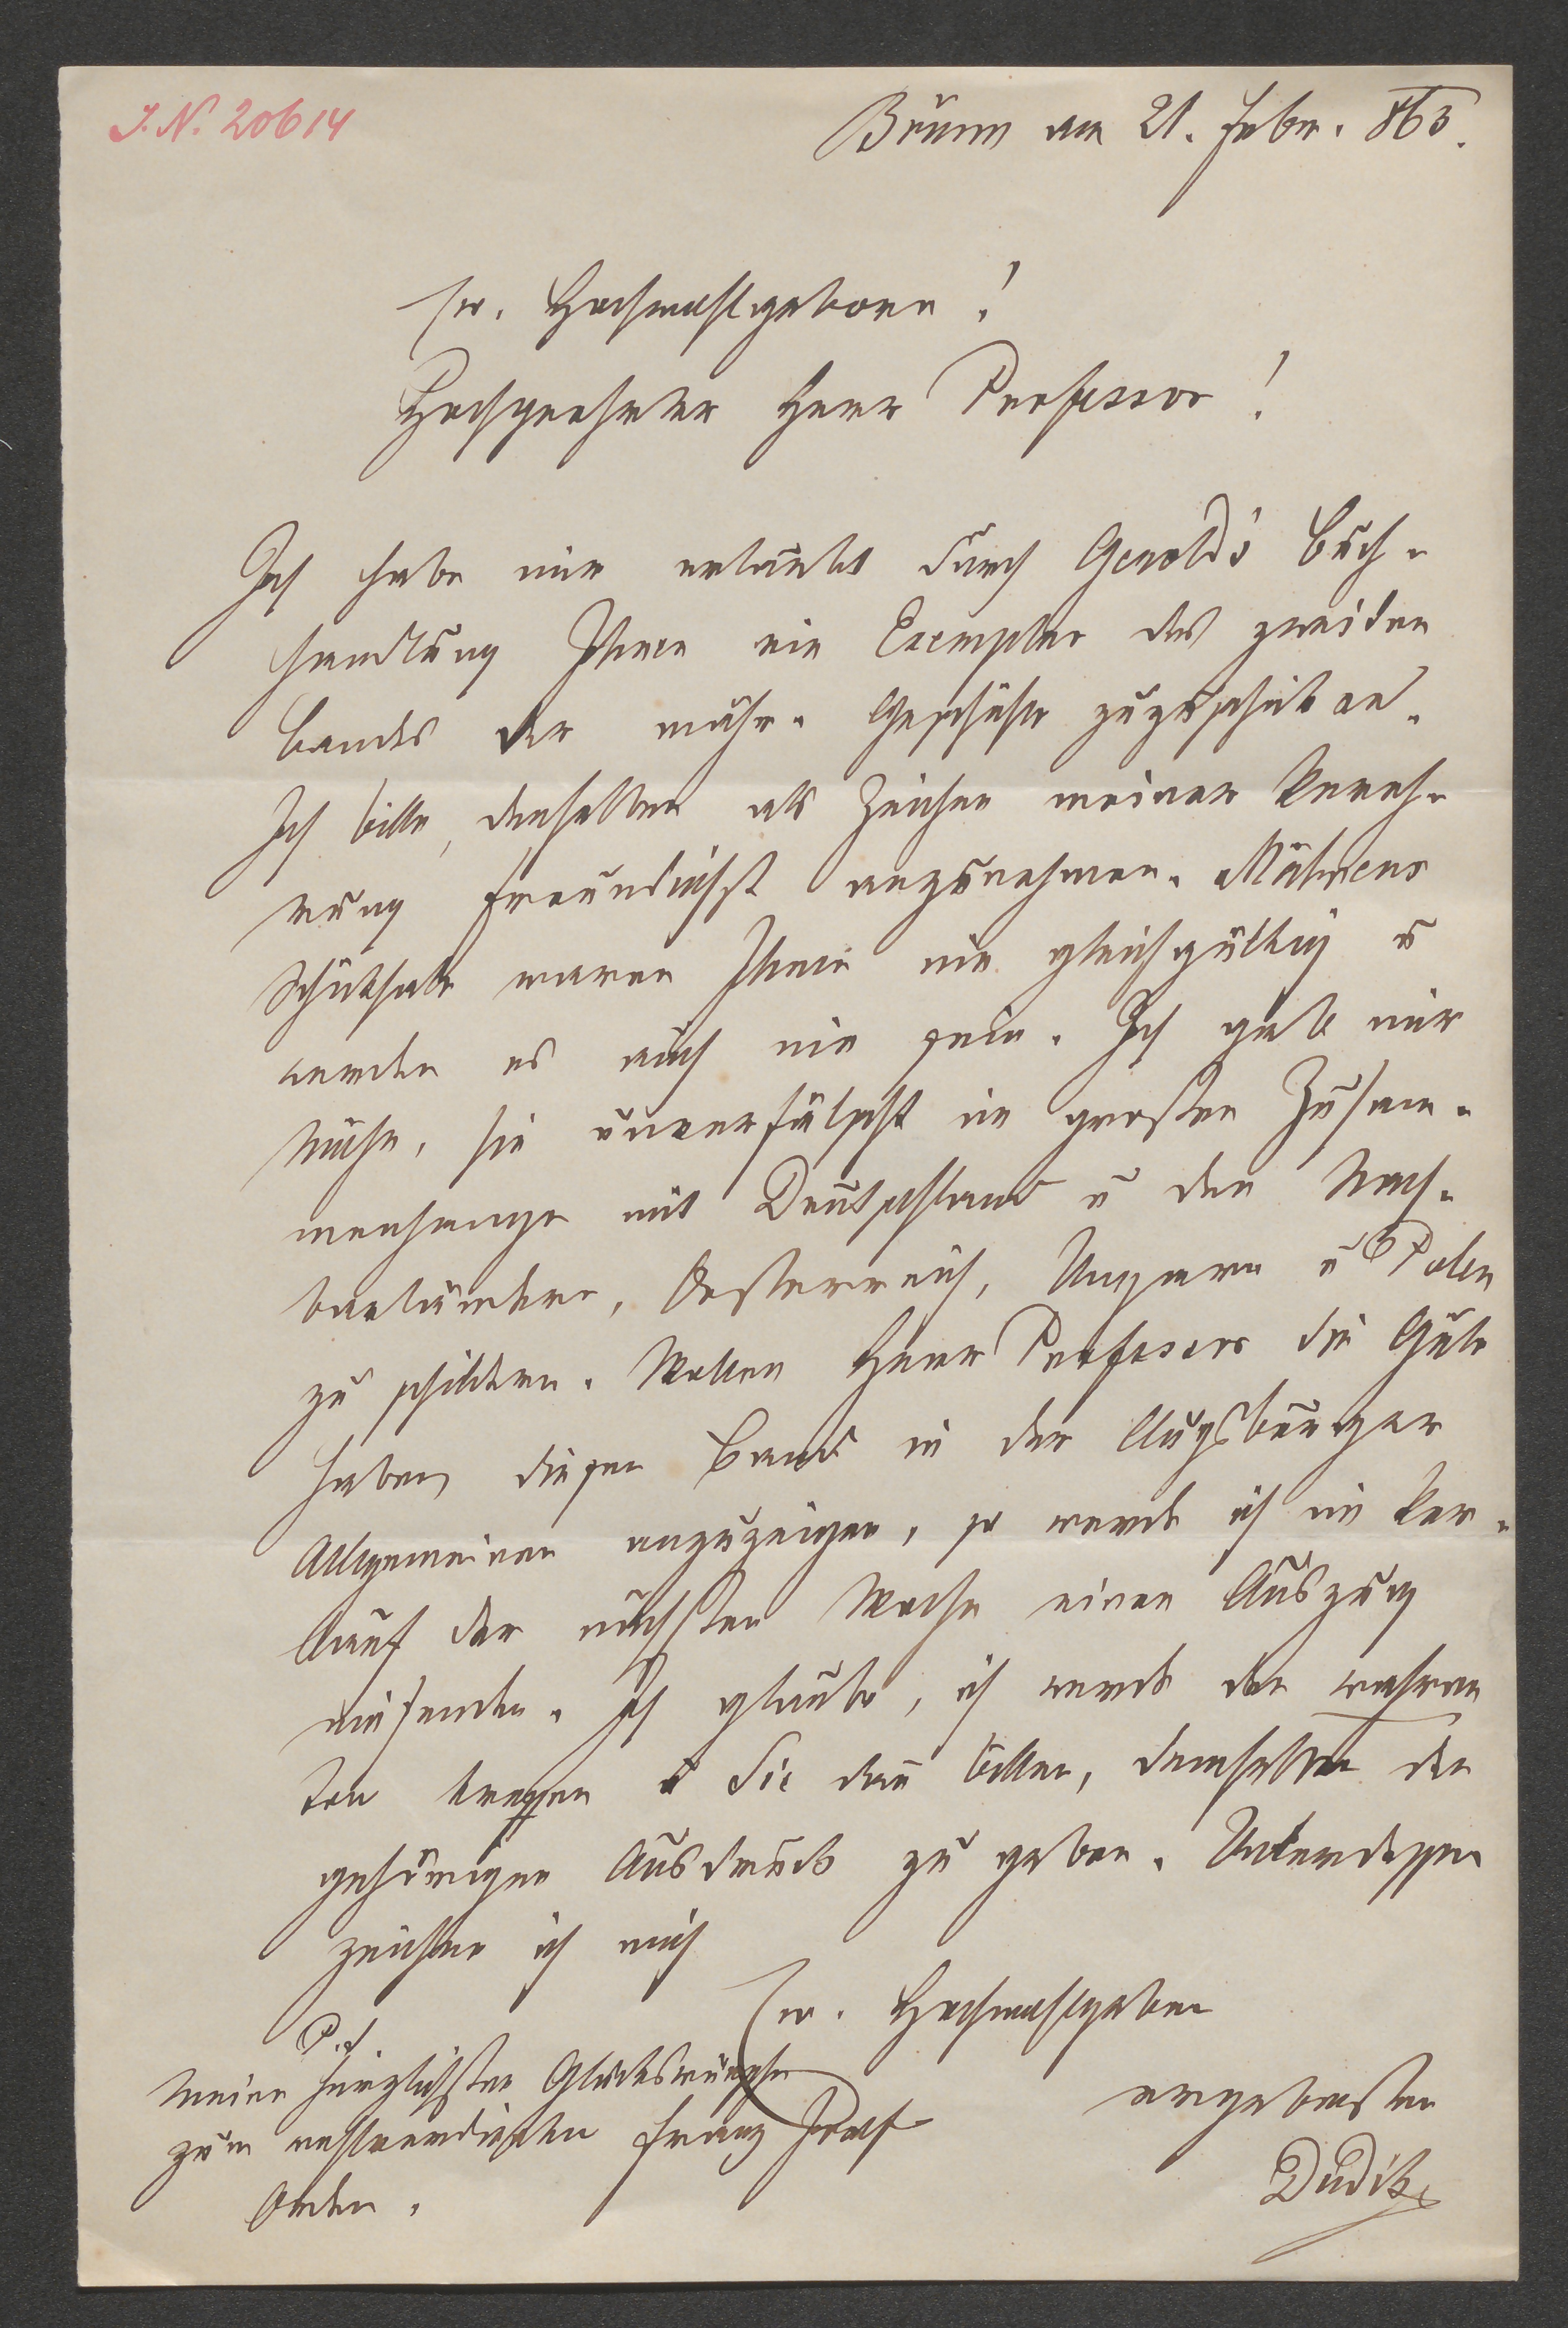 J. N. 20614
Brünn am 21. Febr. 863.
Ew. Hochwohlgeboren!
Hochgeehrter Herr Professor!
Ich habe mir erlaubt durch Gerold's Buch-
handlung Ihnen ein Exemplar des zweiten
Bandes der mähr. Geschichte zuzuschicken.
Ich bitte, denselben als Zeichen meiner Vereh-
rung freundlichst anzunehmen. Mährens
Schicksale waren Ihnen nie gleichgültig u
werden es auch nie sein. Ich gab mir
Mühe, sie unverfälscht im großen Zusam-
menhange mit Deutschland u den Nach-
barländern, Oesterreich, Ungarn u Polen
zu schildern. Wollen Herr Professor die Güte
haben diesen Band in der Augsburger
Allgemeinen anzuzeigen, so werde ich im Ver-
lauf der nächsten Woche einen Auszug
einsenden. Ich glaube, ich werde den wahren
Ton treffen u Sie dañ bitten, demselben den
gehörigen Ausdruck zu geben. Unterdessen
zeichne ich mich
Ew. Hochwohlgeboren
ergebenster
Dudik
P.S.
Meine herzlichsten Glückswünsche
zum wohlverdienten Franz Josef
Orden.